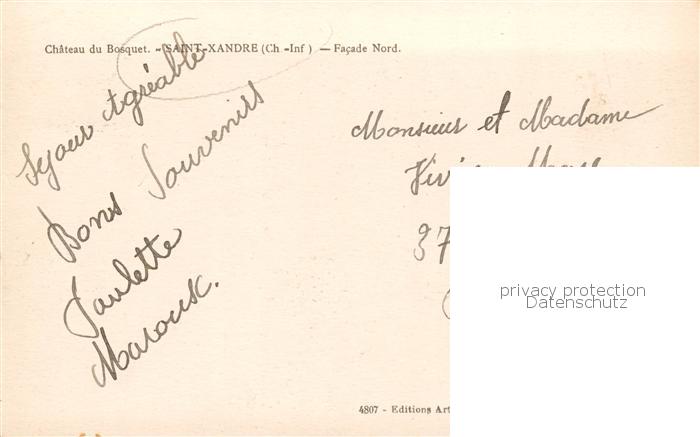 Château du Bosquet. - SAINT-XANDRE (Ch -Inf ) — Façade Nord.
Sejour Agréable
Bons Souvenirs
Paulette
Monsieur et Madame
37
privacy protection
Datenschutz
4807 - Editions Art